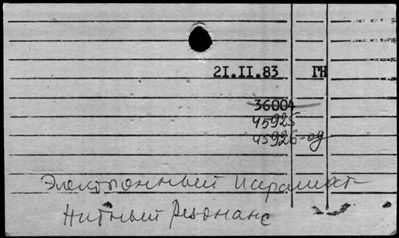 21.II.83 ГН
36004
45925
45926-од
Электронный парамаг-
нитный резонанс